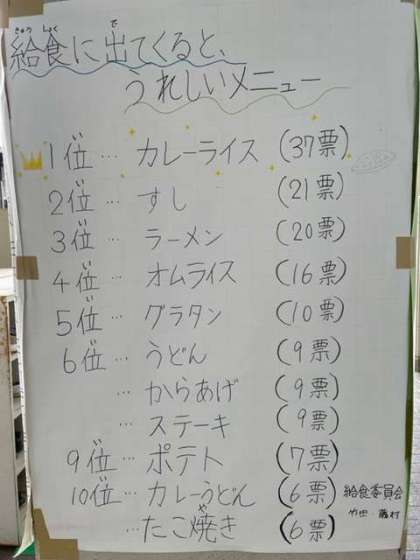 給食に出てくると、
うれしいメニュー
1位… カレーライス (37票)
2位… すし (21票)
3位… ラーメン (20票)
4位… オムライス (16票)
5位… グラタン (10票)
6位… うどん (9票)
… からあげ (9票)
… ステーキ (9票)
9位… ポテト (7票)
10位… カレーうどん (6票)
… たこ焼き (6票)
給食委員会
竹田・藤村